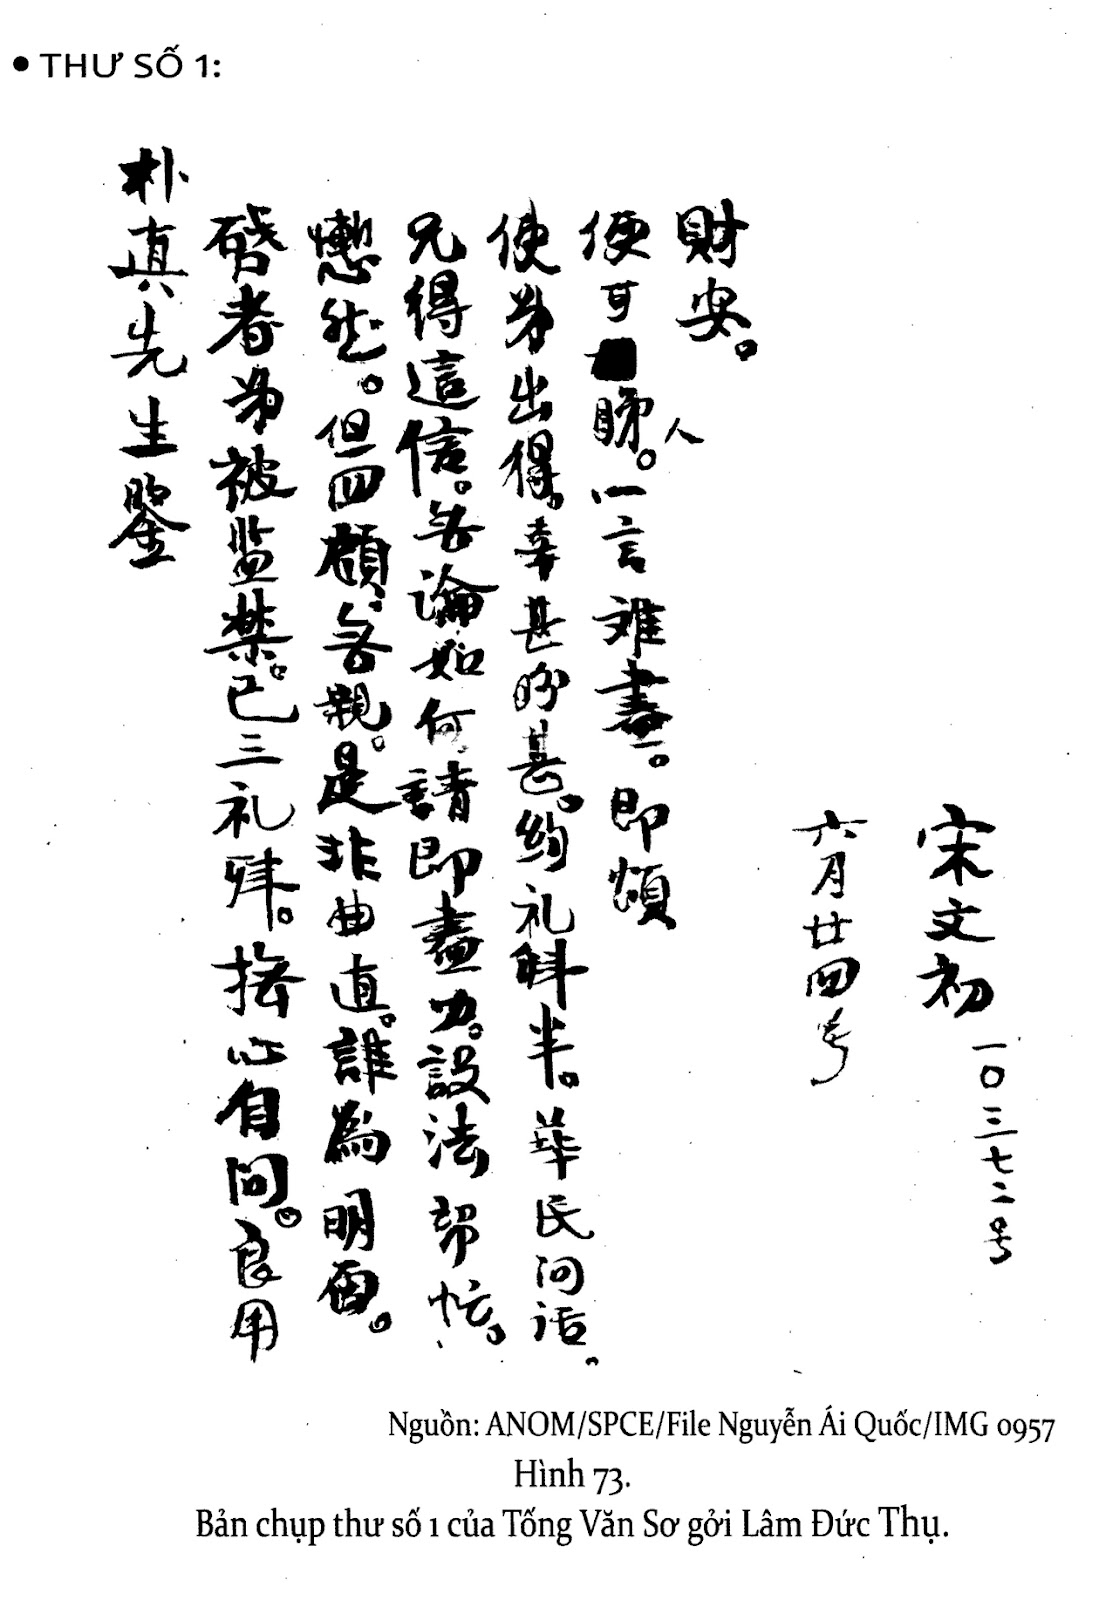 • THƯ SỐ 1:
朴真先生鑒
啓者弟被监禁。已三礼拜。撫心自问。良用
慙然。但四顧無親。是非曲直。誰為明。
兄得這信。無論如何請即盡力。設法帮忙。
使弟出得。幸甚盼甚。約礼拜半。華民问话。
便可睇人。一言难盡。即頌
財安。
六月廿四号
宋文初 一〇三七二号
Nguồn: ANOM/SPCE/File Nguyễn Ái Quốc/IMG 0957
Hình 73.
Bản chụp thư số 1 của Tống Văn Sơ gởi Lâm Đức Thụ.